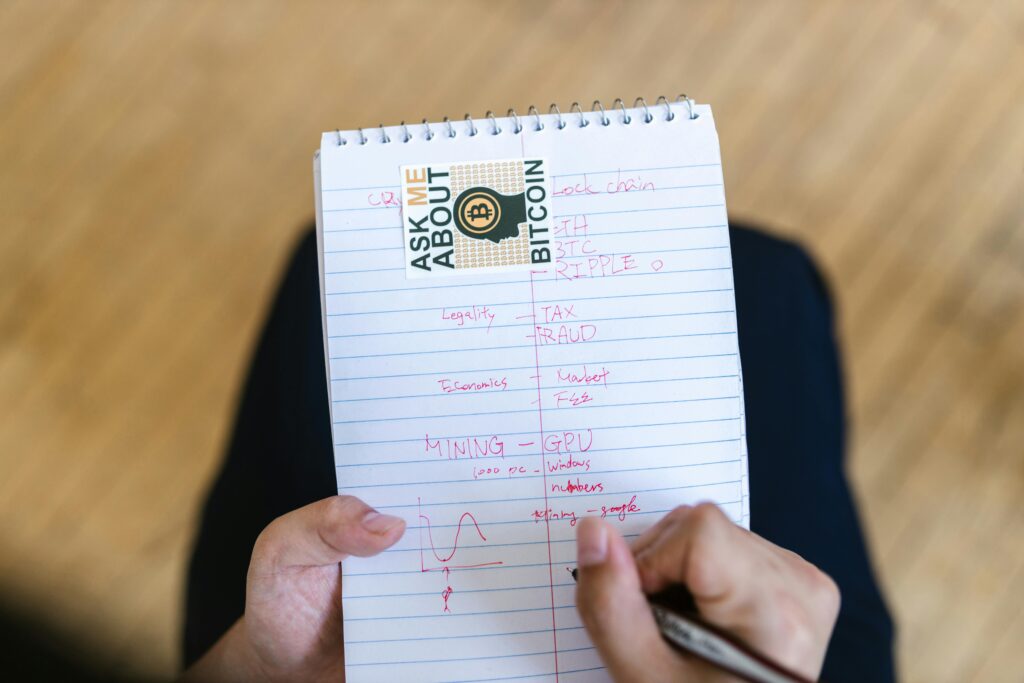 ASK ME
ABOUT
BITCOIN
lock chain
TH
BTC
RIPPLE
Legality – TAX
– FRAUD
Economics – Market
– FEE
MINING – GPU
1000 pc – windows
numbers
– google